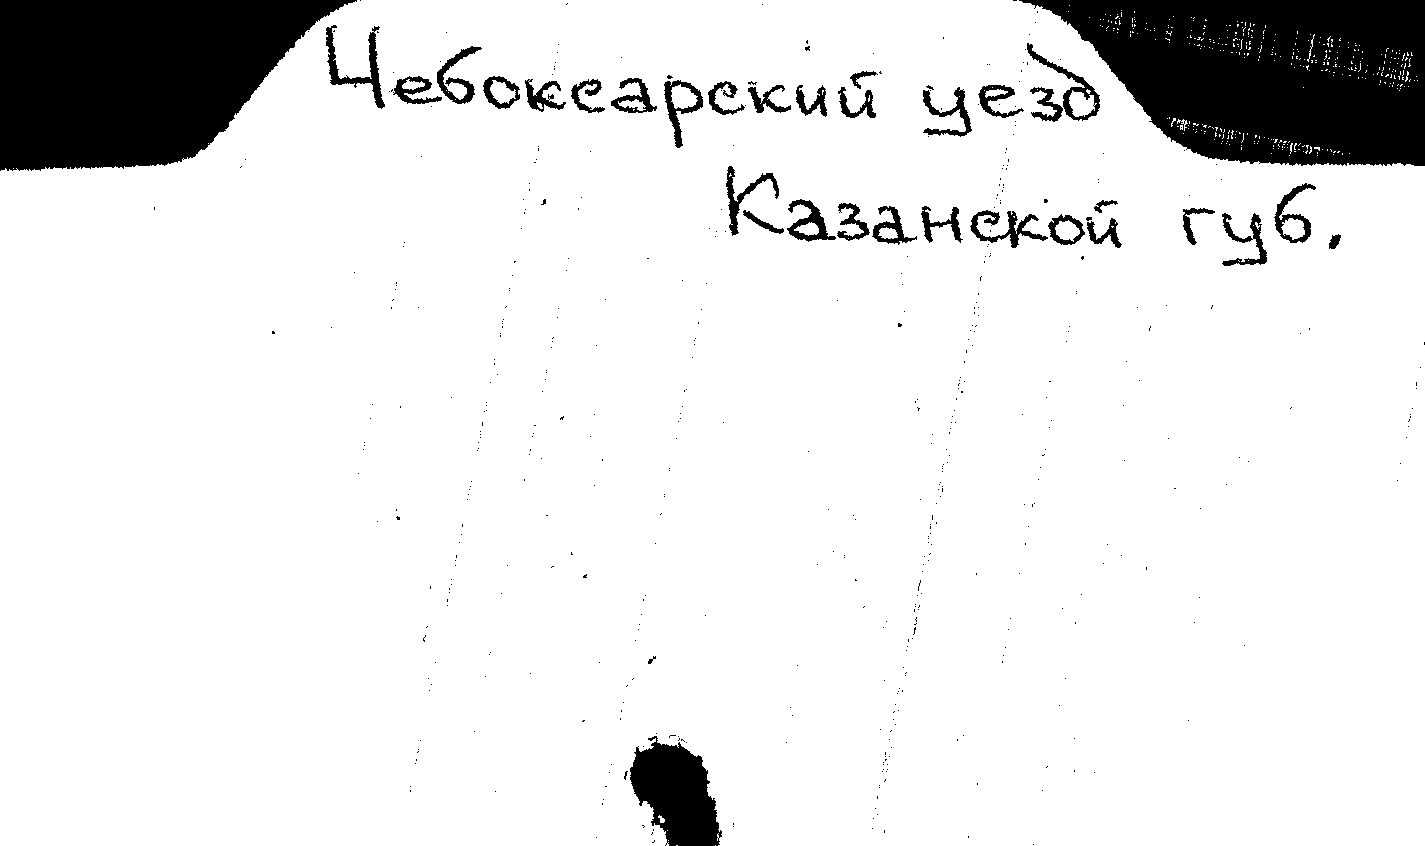 Чебоксарский уезд
Казанской губ.